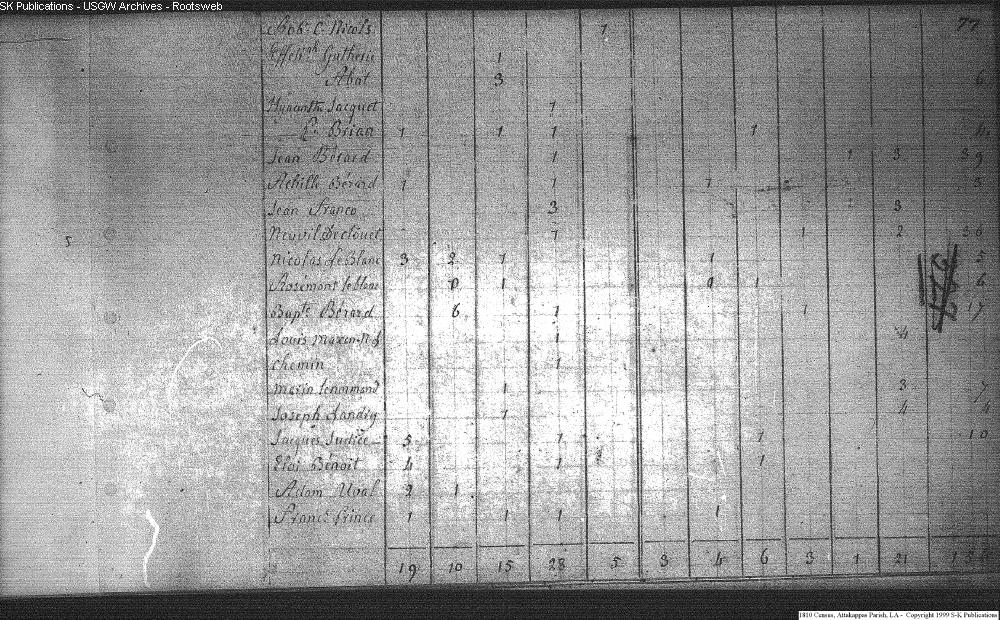 SK Publications - USGW Archives - Rootsweb
77
Robt C. Nicols 1
Guthrie 1
Abat 3 6
Hyacinthe Jacquet 1
Brian 1 1 1 1 4
Jean Bérard 1 1 3 39
Achille Bérard 1 1 1 3
Jean Franco 3 3
Neuvil Declouet 1 1 2 36
Nicolas LeBlanc 3 2 1 1 5
Rosemont leblanc 1 1 6
Bapte Bérard 6 1 1 17
Louis 1 4
chemin 1
Marin lenormand 1 3 7
Joseph Landry 1 4 4
Jacques Judice 5 1 1 10
Eloi Benoit 4 1 1
Adam Uval 2 1
Francs Prince 1 1 1 1
19 10 15 28 5 3 4 6 3 1 21
1810 Census, Attakappas Parish, LA - Copyright 1999 S-K Publications